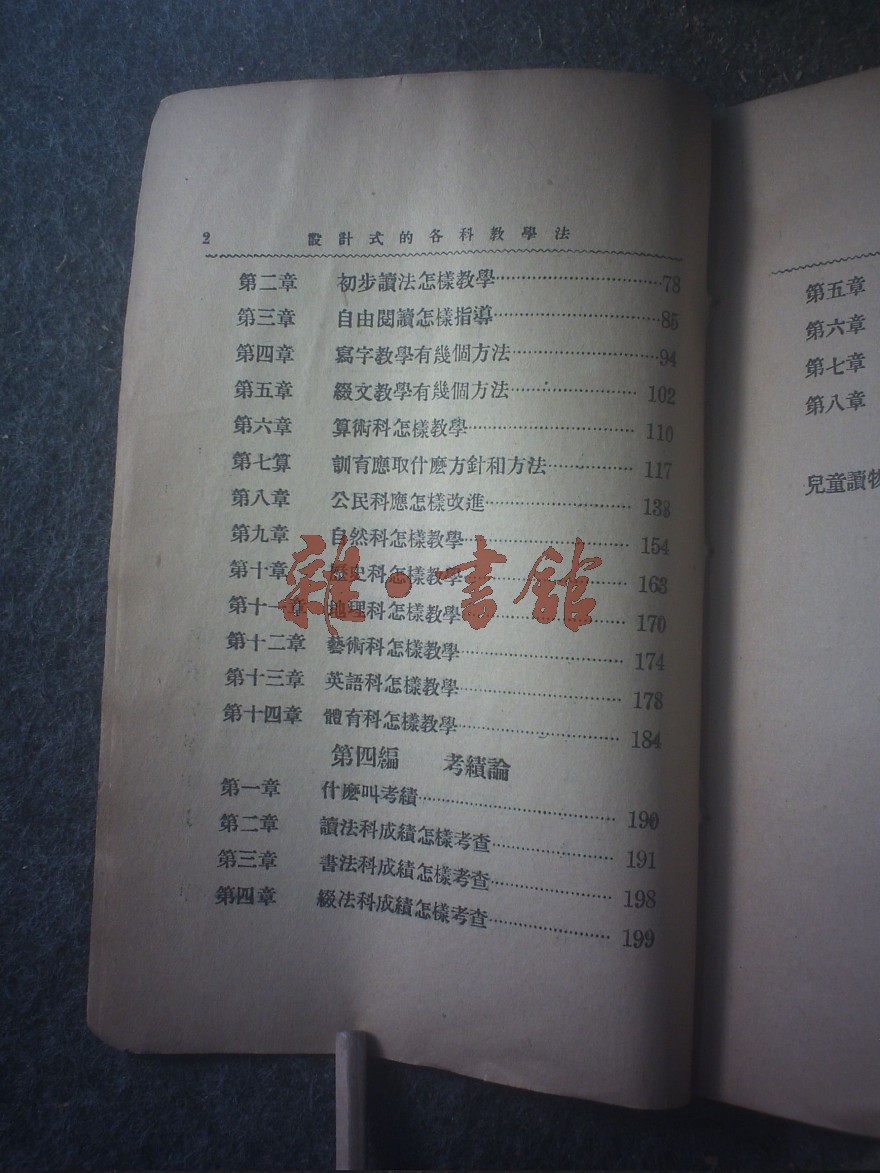 2 設計式的各科教學法
第二章 初步讀法怎樣教學……78
第三章 自由閱讀怎樣指導……85
第四章 寫字教學有幾個方法……94
第五章 綴文教學有幾個方法……102
第六章 算術科怎樣教學……110
第七算 訓育應取什麽方針和方法……117
第八章 公民科應怎樣改進……138
第九章 自然科怎樣教學……154
第十章 歷史科怎樣教學……163
第十一章 地理科怎樣教學……170
第十二章 藝術科怎樣教學……174
第十三章 英語科怎樣教學……178
第十四章 體育科怎樣教學……184
第四編 考績論
第一章 什麽叫考績……190
第二章 讀法科成績怎樣考查……191
第三章 書法科成績怎樣考查……198
第四章 綴法科成績怎樣考查……199
第五章
第六章
第七章
第八章
兒童讀物
雜·書館